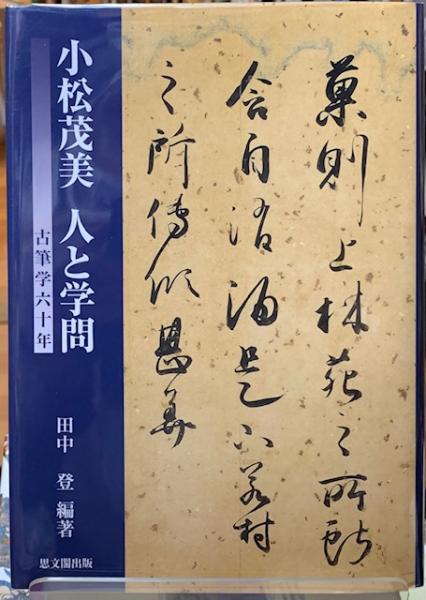 菓則上林苑之所献
含自消酒是下若村
之所傳傾甚美
小松茂美 人と学問
古筆学六十年
田中 登 編著
思文閣出版